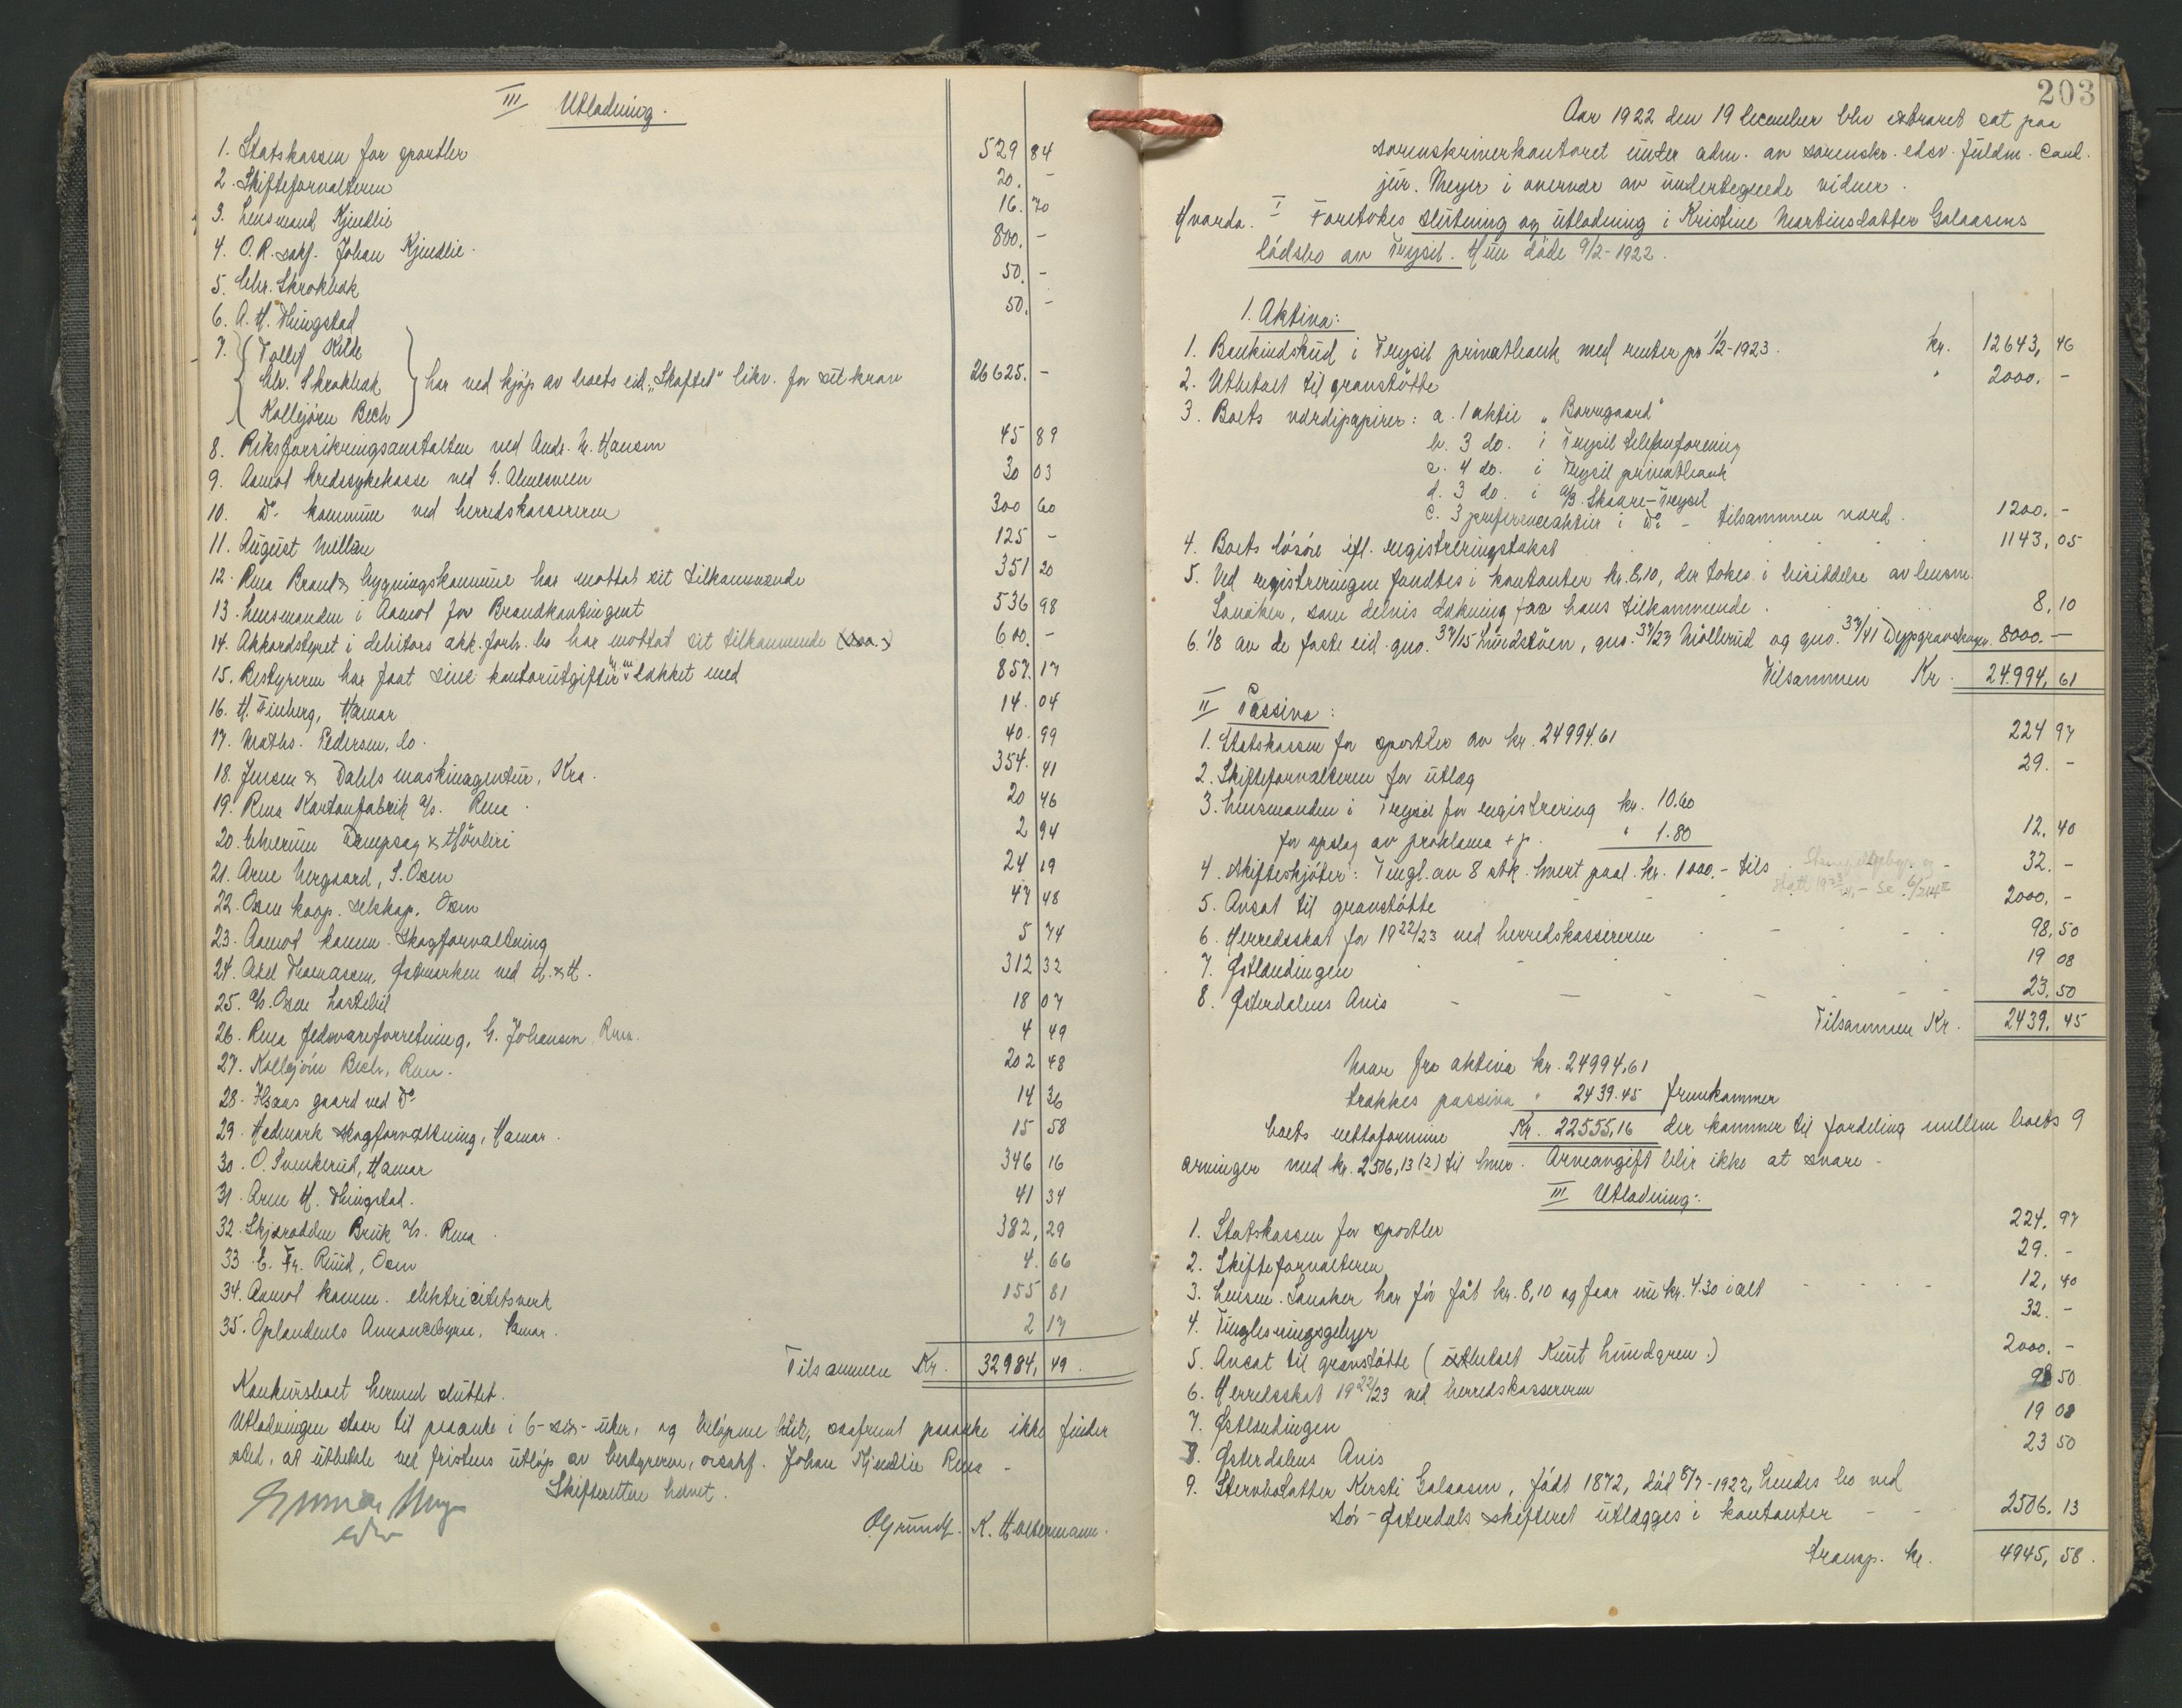 III Utlodning.
1. Statskassen for sportler 529 84
2. Skifteforvalteren 20. -
3. Lensmand Kjendlie 16. 70
4. O.R. sakf. Johan Kjendlie. 800. -
5. Chr. Skrokbæk 50. -
6. A. H. Thingstad 50. -
7. Tollef Kilde
Chr. Skrokbæk har ved kjøp av boets eid. „Skaftet" likv. for sit krav 26625. -
Kolbjörn Bech
8. Riksforsikringsanstalten ved Ands. M. Hansen 45 89
9. Aamot kredssykekasse ved G. Alme 30 03
10. Do. kommune ved herredskassereren 300 60
11. August Melbye 125 -
12. Rena Brand & bygningskommune har mottat sit tilkommende 351 20
13. Lensmanden i Aamot for Brandkontingent 536 98
14. Akkordstyret i debitors akk. forh. bo har mottat sit tilkommende 600. -
15. Bestyreren har faat sine kontorutgifter dækket med 857. 17
16. H. Finberg, Hamar 14. 04
17. Maths. Pedersen, do. 40. 99
18. Jensen & Dahls maskinagentur, Kra. 354. 41
19. Rena Kartonfabrik a/s. Rena. 20 46
20. Elverum Dampsag & Høvleri 2 94
21. Arne Nergaard, S. Osen 24 19
22. Osen koop. selskap, Osen 47 48
23. Aamot komm. Skogforvaltning 5 74
24. Axel Thomassen, Østmarken ved H. & H. 312 32
25. a/s. Osen Lastebil 18 07
26. Rena fedevareforretning, G. Johansen Rena. 4 49
27. Kolbjörn Bech, Rena. 202 48
28. Haas gaard ved Do 14 36
29. Hedmark skogforvaltning, Hamar. 15 58
30. O. Svenkerud, Hamar 346 16
31. Arne H. Thingstad. 41 34
32. Skjærodden Bruk a/s. Rena. 382, 29
33. E. Fr. Ruud, Osen 4. 66
34. Aamot komm. elektricitetsverk 155 81
35. Oplandenes Annoncebyrå, Hamar. 2 17
Tilsammen Kr. 32984, 49.
Konkursboet hermed sluttet.
Utlodningen staar til paaanke i 6- sex- uker, og beløpene blir, saafremt paaanke ikke finder
sted, at utbetale ved fristens utløp av bestyreren, orsakf. Johan Kjendlie Rena -
Skifteretten hævet.
Gunnar Meyer
edsv
O. Grundt. K. Holtermann.
203
Aar 1922 den 19 december blev extraret sat paa
sorenskriverkontoret under adm. av sorenskr. edsv. fuldm. cand.
jur. Meyer i overvær av undertegnede vidner.
Hvorda. I Foretokes slutning og utlodning i Kristine Martinsdatter Galaasens
dödsbo av Trysil. Hun döde 9/2-1922.
1. Aktiva:
1. Bankindskud i Trysil privatbank med renter pr 1/2-1923. kr. 12643, 46
2. Utbetalt til gravstötte " 2000. -
3. Boets værdipapirer: a. 1 aktie „Borregaard"
b. 3 do. i Trysil telefonforening
c. 4 do. i Trysil privatbank
d. 3 do. i a/s. Skaare-Trysil
e. 3 preferenceaktier i Do. - tilsammen værd. 1200. -
4. Boets lösöre efl. registreringstakst 1143, 05
5. Ved registreringen fandtes i kontanter kr. 8,10, der tokes i besiddelse av lensm.
Sanaker, som delvis dækning for hans tilkommende. 8, 10
6. 1/8 av de faste eid. gno. 37/15 Lundstöen, gno. 37/23 Möllerud og gno. 37/41 Dypgravshagen. 8000. -
Tilsammen Kr. 24.994, 61
II Passiva:
1. Statskassen for sportler av kr. 24994.61 224 97
2. Skifteforvalteren for utlæg 29. -
3. Lensmanden i Trysil for registrering kr. 10.60
for opslag av proklama + p. " 1.80 12. 40
4. Skifteskjöter: Tingl. av 8 stk. hvert paal. kr. 1000.- tils 32. -
5. Avsat til gravstötte 2000. -
6. Herredsskat for 1922/23 ved herredskassereren 98, 50
7. Østlendingen 19 08
8. Østerdalens Avis 23. 50
Tilsammen Kr. 2439. 45
Naar fra aktiva kr. 24994,61
trækkes passiva " 2439.45 fremkommer
boets nettoformue Kr. 22555,16 der kommer til fordeling mellem boets 9
arvinger med kr. 2506,13 (2) til hver. Arveavgift blir ikke at svare -
III Utlodning:
1. Statskassen for sportler 224. 97
2. Skifteforvalteren 29. -
3. Lensm. Sanaker har för fåt kr. 8,10 og faar nu kr. 4.30 ialt 12, 40
4. Tinglæsningsgebyr 32. -
5. Avsat til gravstötte (utbetalt Knut Lundgren.) 2000. -
6. Herredsskat 1922/23 ved herredskassereren 98 50
7. Østlendingen 19 08
8. Østerdalens Avis 23 50
9. Stervbodatter Kersti Galaasen, födt 1872, död 8/7-1922, hendes bo ved
Sör-Østerdals skifteret utlægges i kontanter - - 2506. 13
transp. kr. 4945, 58.